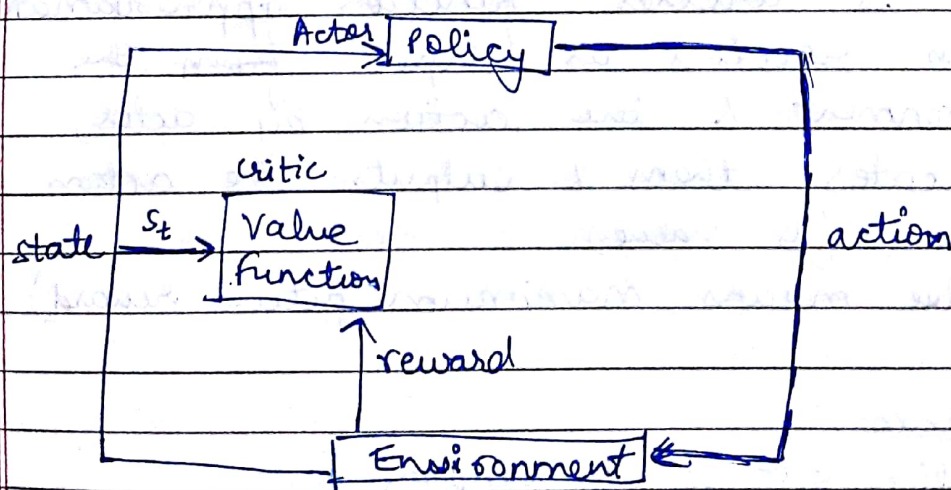 Actor Policy
critic
state St Value
function
action
reward
Environment